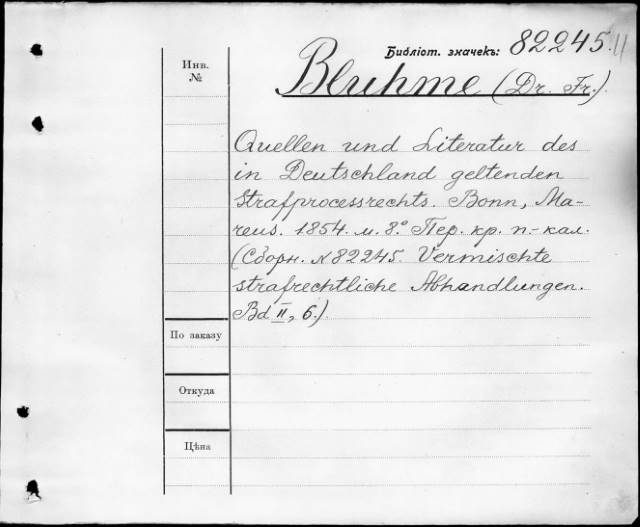 Библіот. значекъ: 82245.11
Инв.
№
Bluhme (Dr. Fr.).
Quellen und Literatur des
in Deutschland geltenden
Strafprocessrechts. Bonn, Ma-
rcus. 1854. м. 8.° Пер. кр. п.-кал.
(Сборн. № 82245. Vermischte
strafrechtliche Abhandlungen.
Bd II, 6.).
По заказу
Откуда
Цѣна